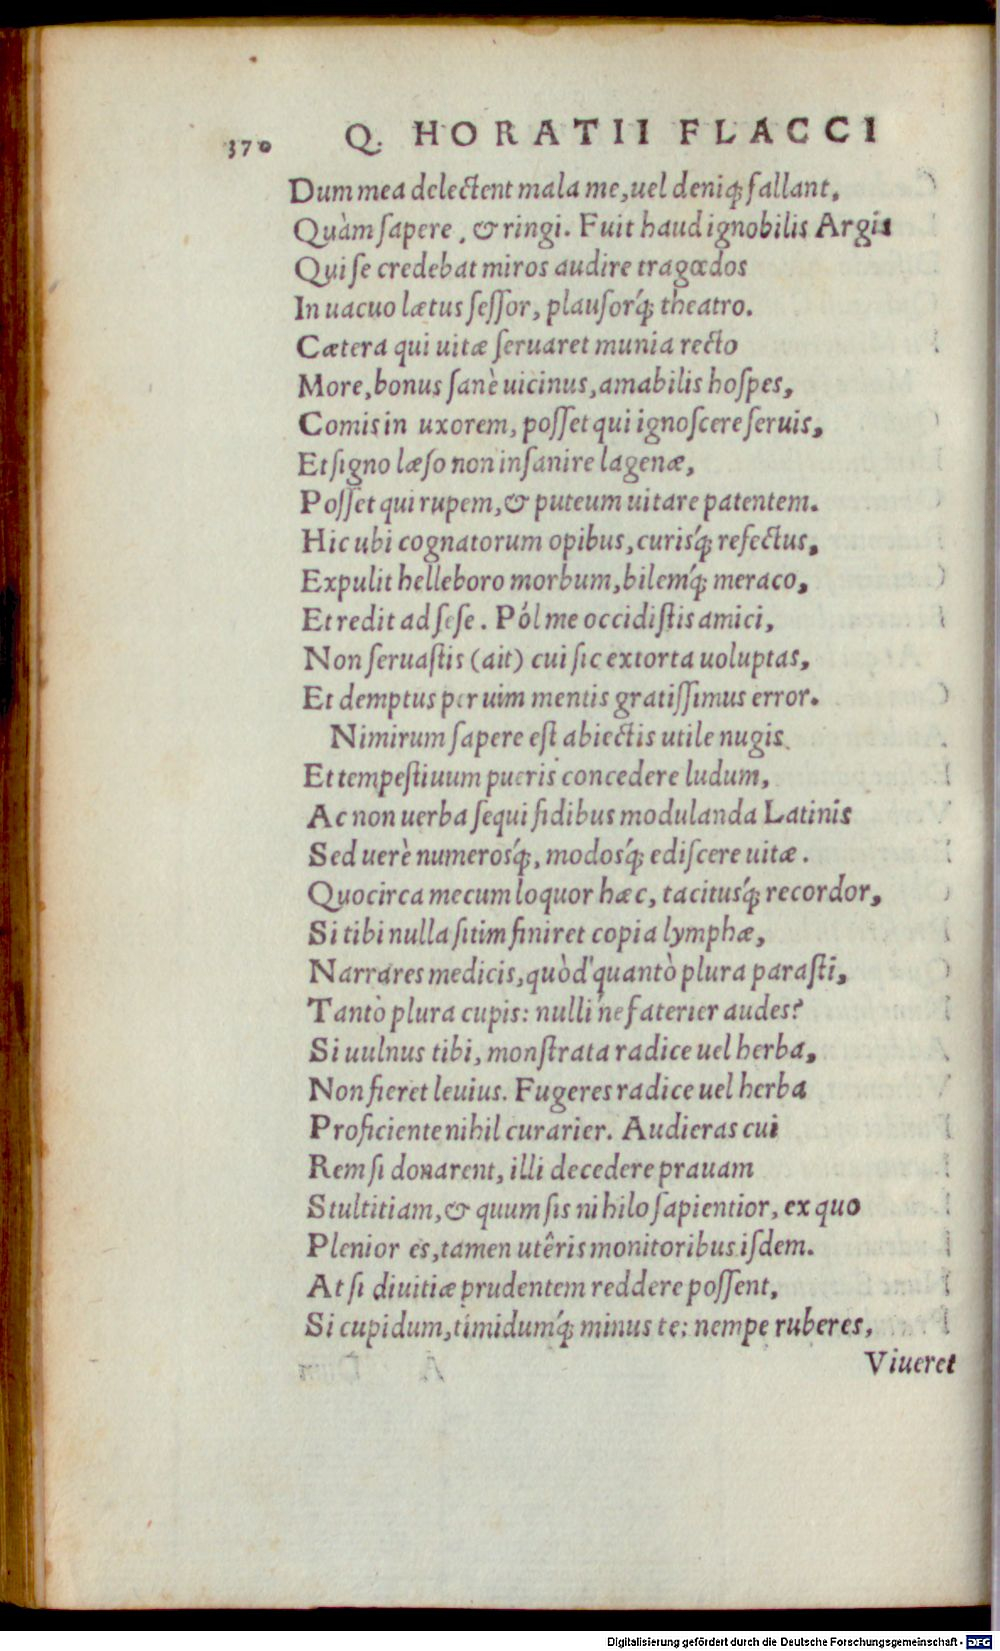 370 Q. HORATII FLACCI
Dum mea delectent mala me, uel deniq; fallant,
Quàm sapere, & ringi. Fuit haud ignobilis Argis
Qui se credebat miros audire tragœdos
In uacuo lætus sessor, plausorq́; theatro.
Cætera qui uitæ seruaret munia recto
More, bonus sanè uicinus, amabilis hospes,
Comis in uxorem, posset qui ignoscere seruis,
Et signo læso non insanire lagenæ,
Posset qui rupem, & puteum uitare patentem.
Hic ubi cognatorum opibus, curisq́; refectus,
Expulit helleboro morbum, bilemq́; meraco,
Et redit ad sese. Pól me occidistis amici,
Non seruastis (ait) cui sic extorta uoluptas,
Et demptus per uim mentis gratissimus error.
Nimirum sapere est abiectis utile nugis
Et tempestiuum pueris concedere ludum,
Ac non uerba sequi fidibus modulanda Latinis
Sed uerè numerosq́;, modosq́; ediscere uitæ.
Quocirca mecum loquor hæc, tacitusq́; recordor,
Si tibi nulla sitim finiret copia lymphæ,
Narrares medicis, quòd quantò plura parasti,
Tantò plura cupis: nulli ne faterier audes?
Si uulnus tibi, monstrata radice uel herba,
Non fieret leuius. Fugeres radice uel herba
Proficiente nihil curarier. Audieras cui
Rem si donarent, illi decedere prauam
Stultitiam, & quum sis nihilo sapientior, ex quo
Plenior es, tamen utêris monitoribus isdem.
At si diuitiæ prudentem reddere possent,
Si cupidum, timidumq́; minus te: nempe ruberes,
Viueret
Digitalisierung gefördert durch die Deutsche Forschungsgemeinschaft - DFG